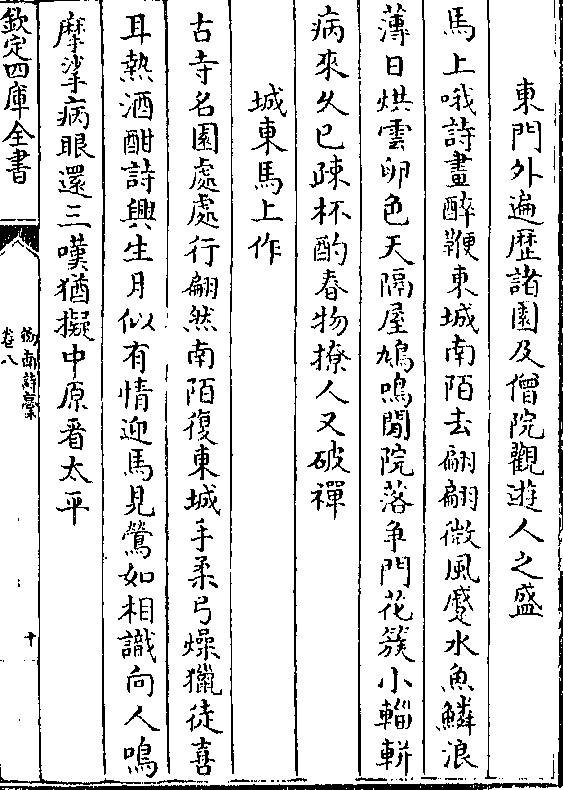 東門外遍歷諸園及僧院觀遊人之盛
馬上哦詩畫醉鞭東城南陌去翩翩微風蹙水魚鱗浪
薄日烘雲卵色天隔屋鳩鳴閒院落争門花簇小輜軿
病來久已疎杯酌春物撩人又破禪
城東馬上作
古寺名園處處行翩然南陌復東城手柔弓燥獵徒喜
耳熱酒酣詩興生月似有情迎馬見鶯如相識向人鳴
摩挲病眼還三嘆猶擬中原看太平
欽定四庫全書
劍南詩藁
卷八
十